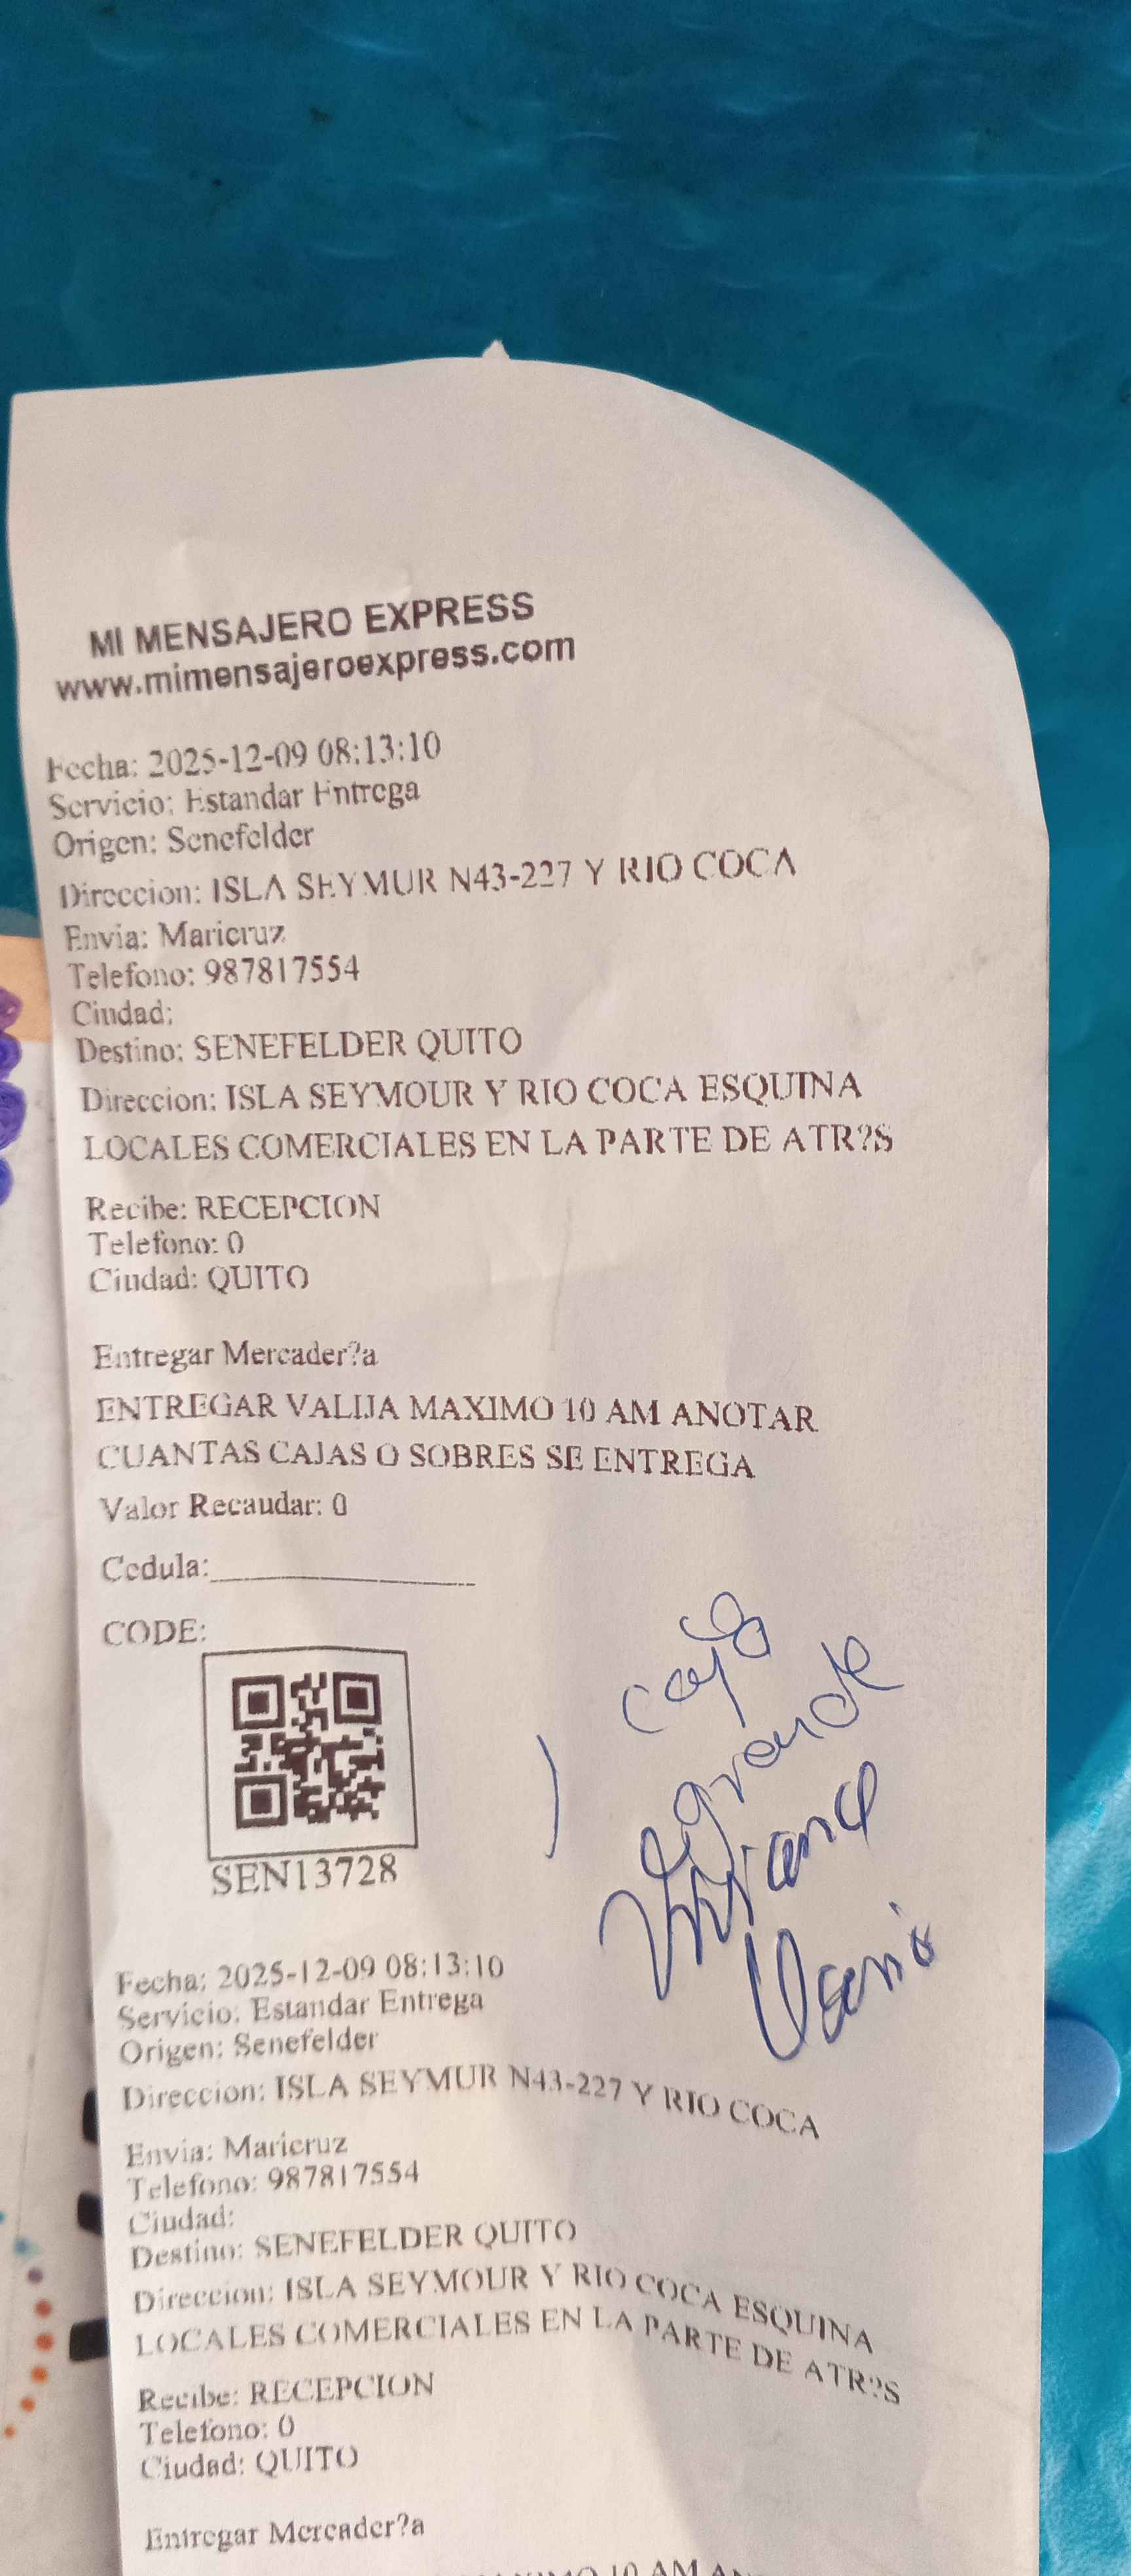 MI MENSAJERO EXPRESS
www.mimensajeroexpress.com
Fecha: 2025-12-09 08:13:10
Servicio: Estandar Entrega
Origen: Senefelder
Direccion: ISLA SEYMUR N43-227 Y RIO COCA
Envia: Maricruz
Telefono: 987817554
Ciudad:
Destino: SENEFELDER QUITO
Direccion: ISLA SEYMOUR Y RIO COCA ESQUINA
LOCALES COMERCIALES EN LA PARTE DE ATR?S
Recibe: RECEPCION
Telefono: 0
Ciudad: QUITO
Entregar Mercader?a
ENTREGAR VALIJA MAXIMO 10 AM ANOTAR
CUANTAS CAJAS O SOBRES SE ENTREGA
Valor Recaudar: 0
Cedula:
CODE:
SEN13728
1 caja
grande
Viviana
Fecha: 2025-12-09 08:13:10
Servicio: Estandar Entrega
Origen: Senefelder
Direccion: ISLA SEYMUR N43-227 Y RIO COCA
Envia: Maricruz
Telefono: 987817554
Ciudad:
Destino: SENEFELDER QUITO
Direccion: ISLA SEYMOUR Y RIO COCA ESQUINA
LOCALES COMERCIALES EN LA PARTE DE ATR?S
Recibe: RECEPCION
Telefono: 0
Ciudad: QUITO
Entregar Mercader?a